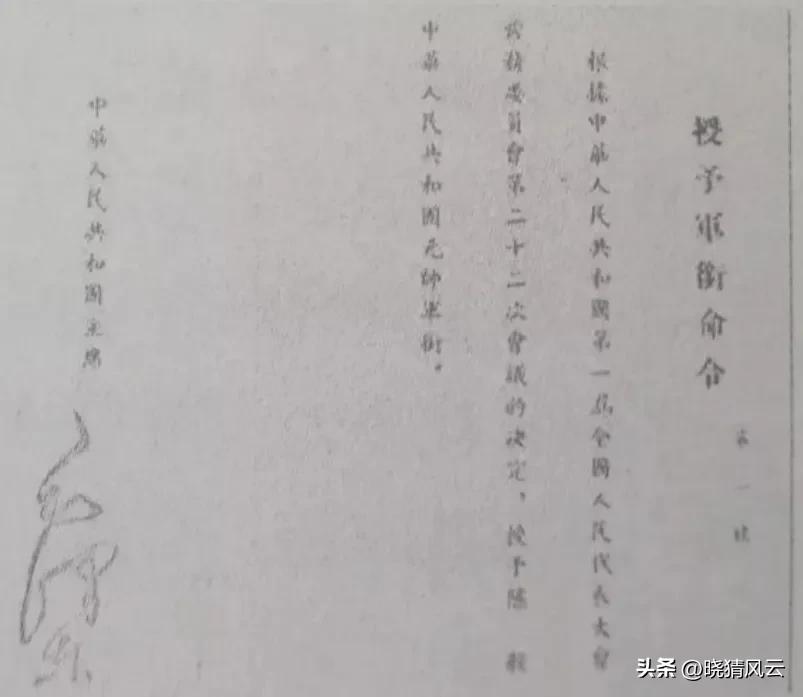 授予軍銜命令
第一號
根據中華人民共和國第一屆全國人民代表大會
常務委員會第二十二次會議的決定，授予陳 毅
中華人民共和國元帥軍銜。
中華人民共和國主席
毛澤东
头条 @晓猜风云